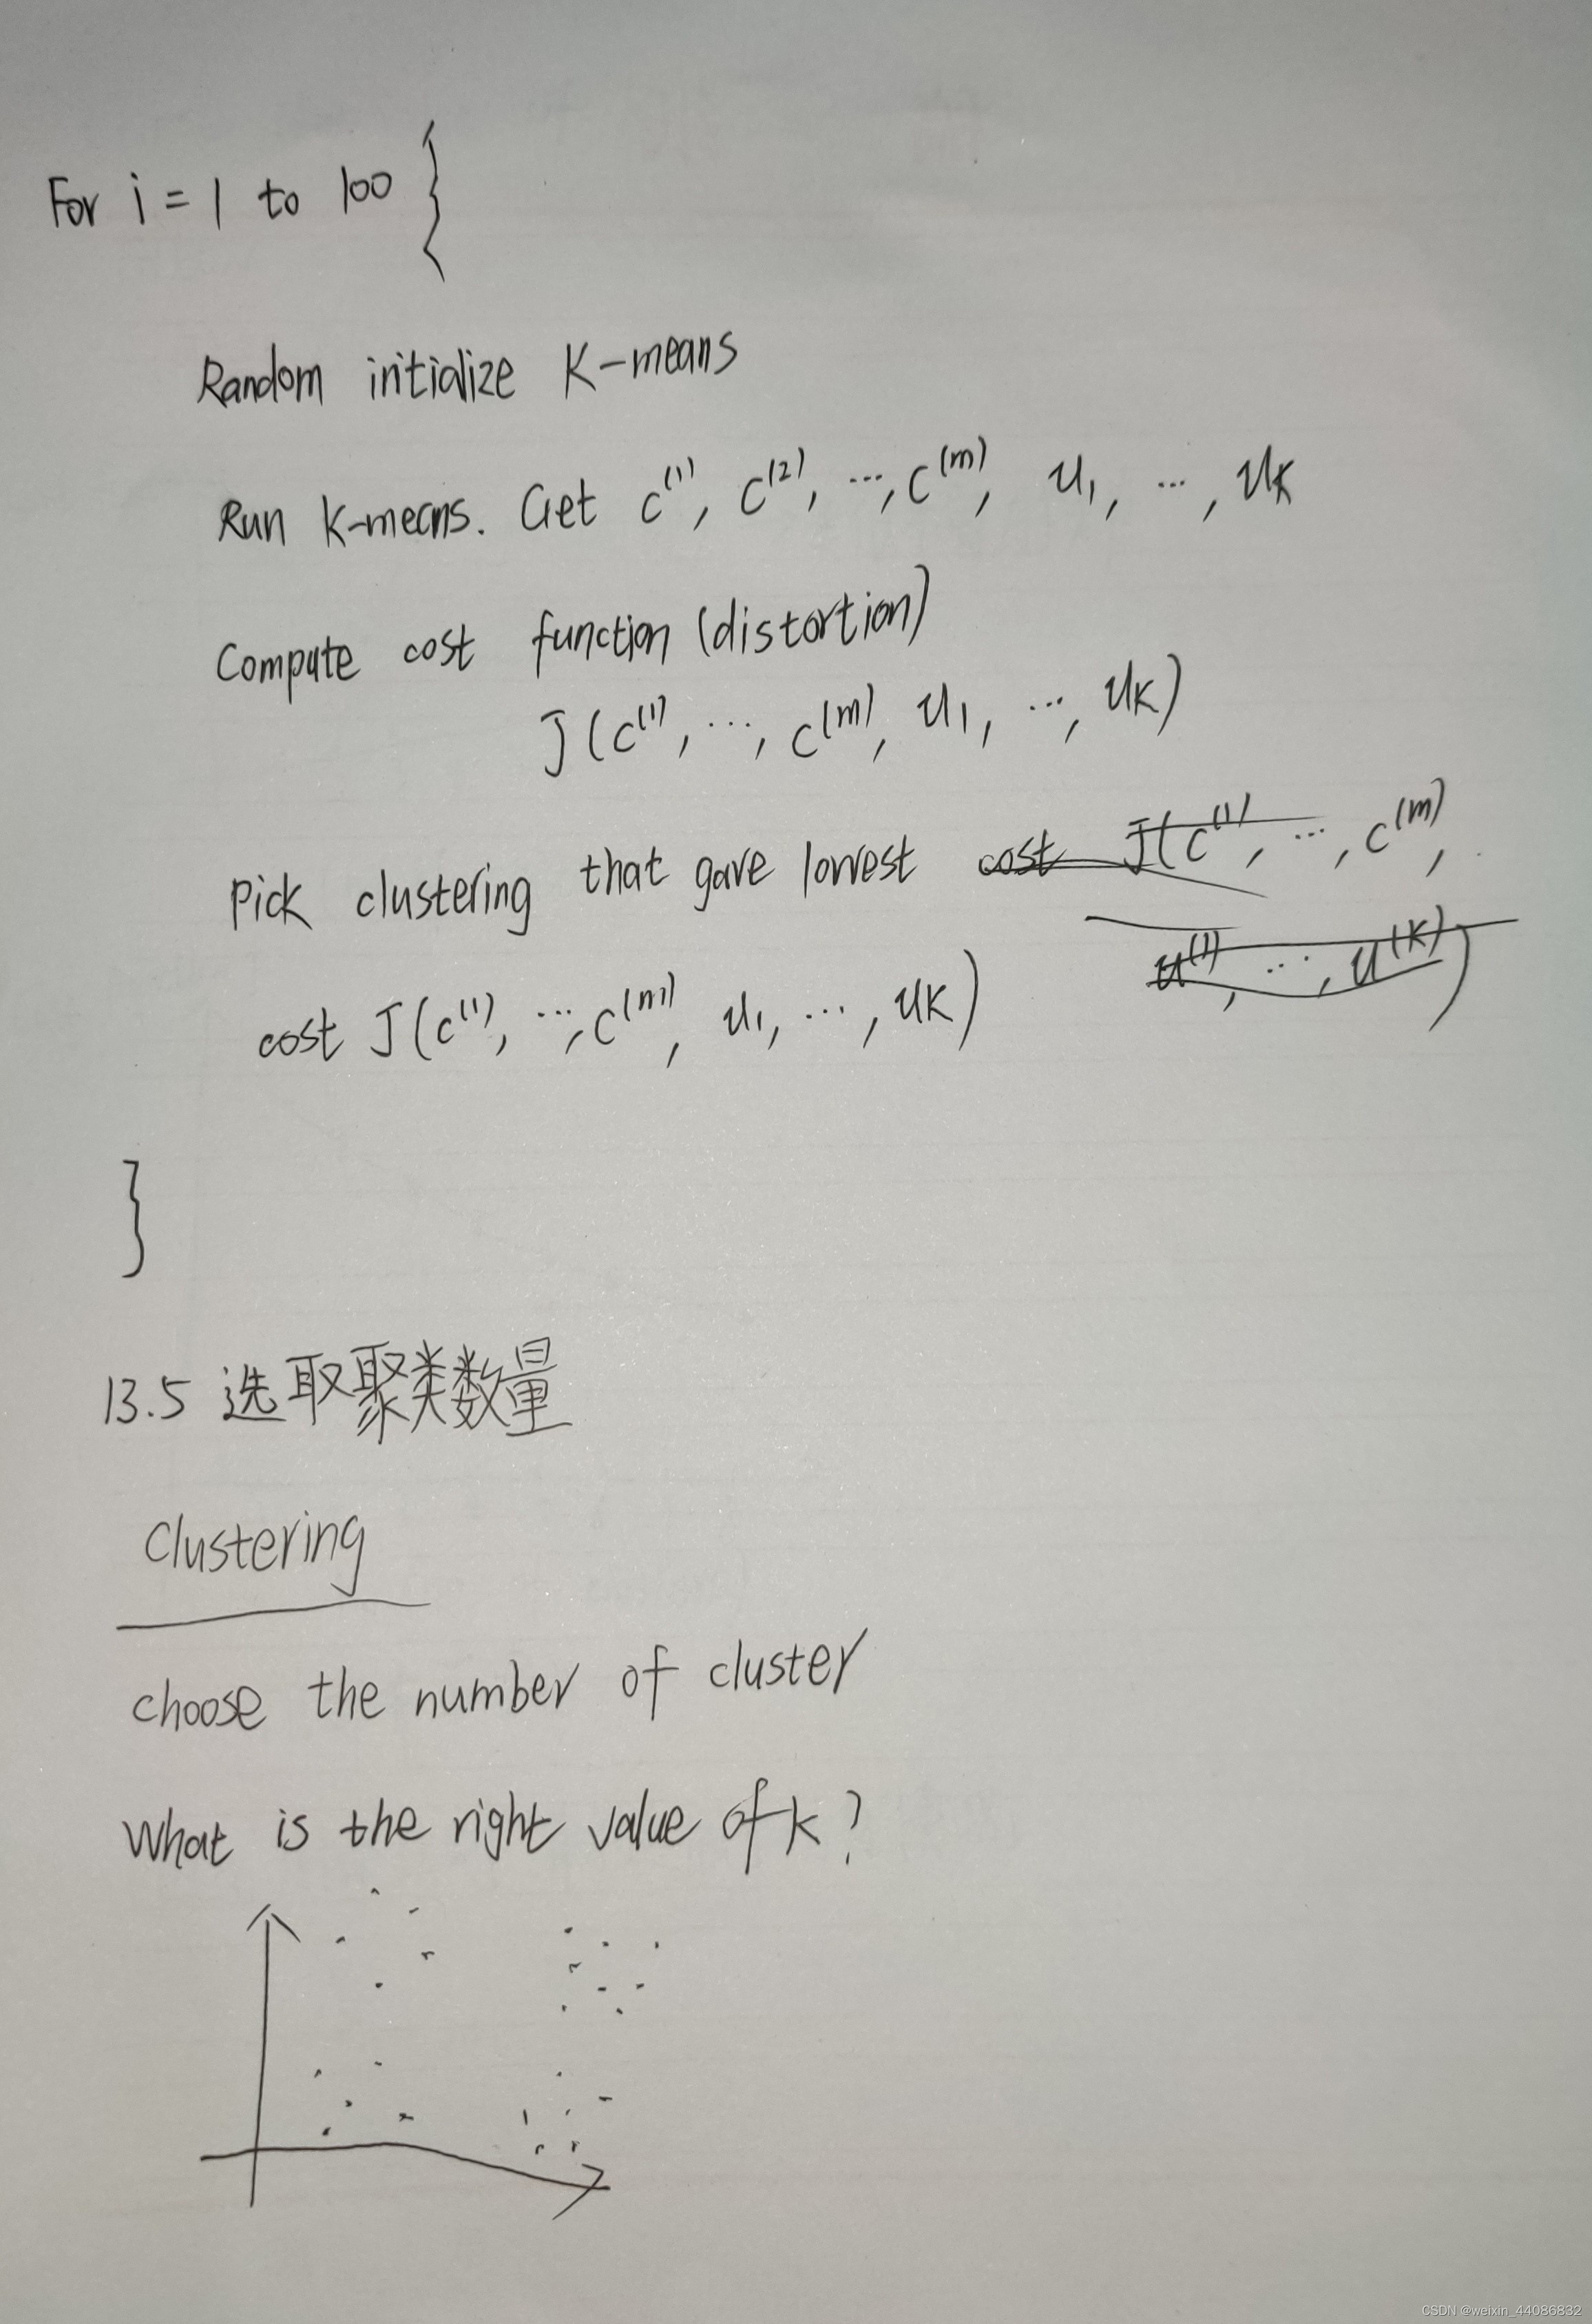 For i = 1 to 100 {
Random initialize K-means
Run K-means. Get c^(1), c^(2), ..., c^(m), u_1, ..., u_K
Compute cost function (distortion)
J(c^(1), ..., c^(m), u_1, ..., u_K)
Pick clustering that gave lowest cost J(c^(1), ..., c^(m),
u^(1), ..., u^(K))
cost J(c^(1), ..., c^(m), u_1, ..., u_K)
}
13.5 选取聚类数量
Clustering
choose the number of cluster
What is the right value of k?
CSDN @weixin_44086832